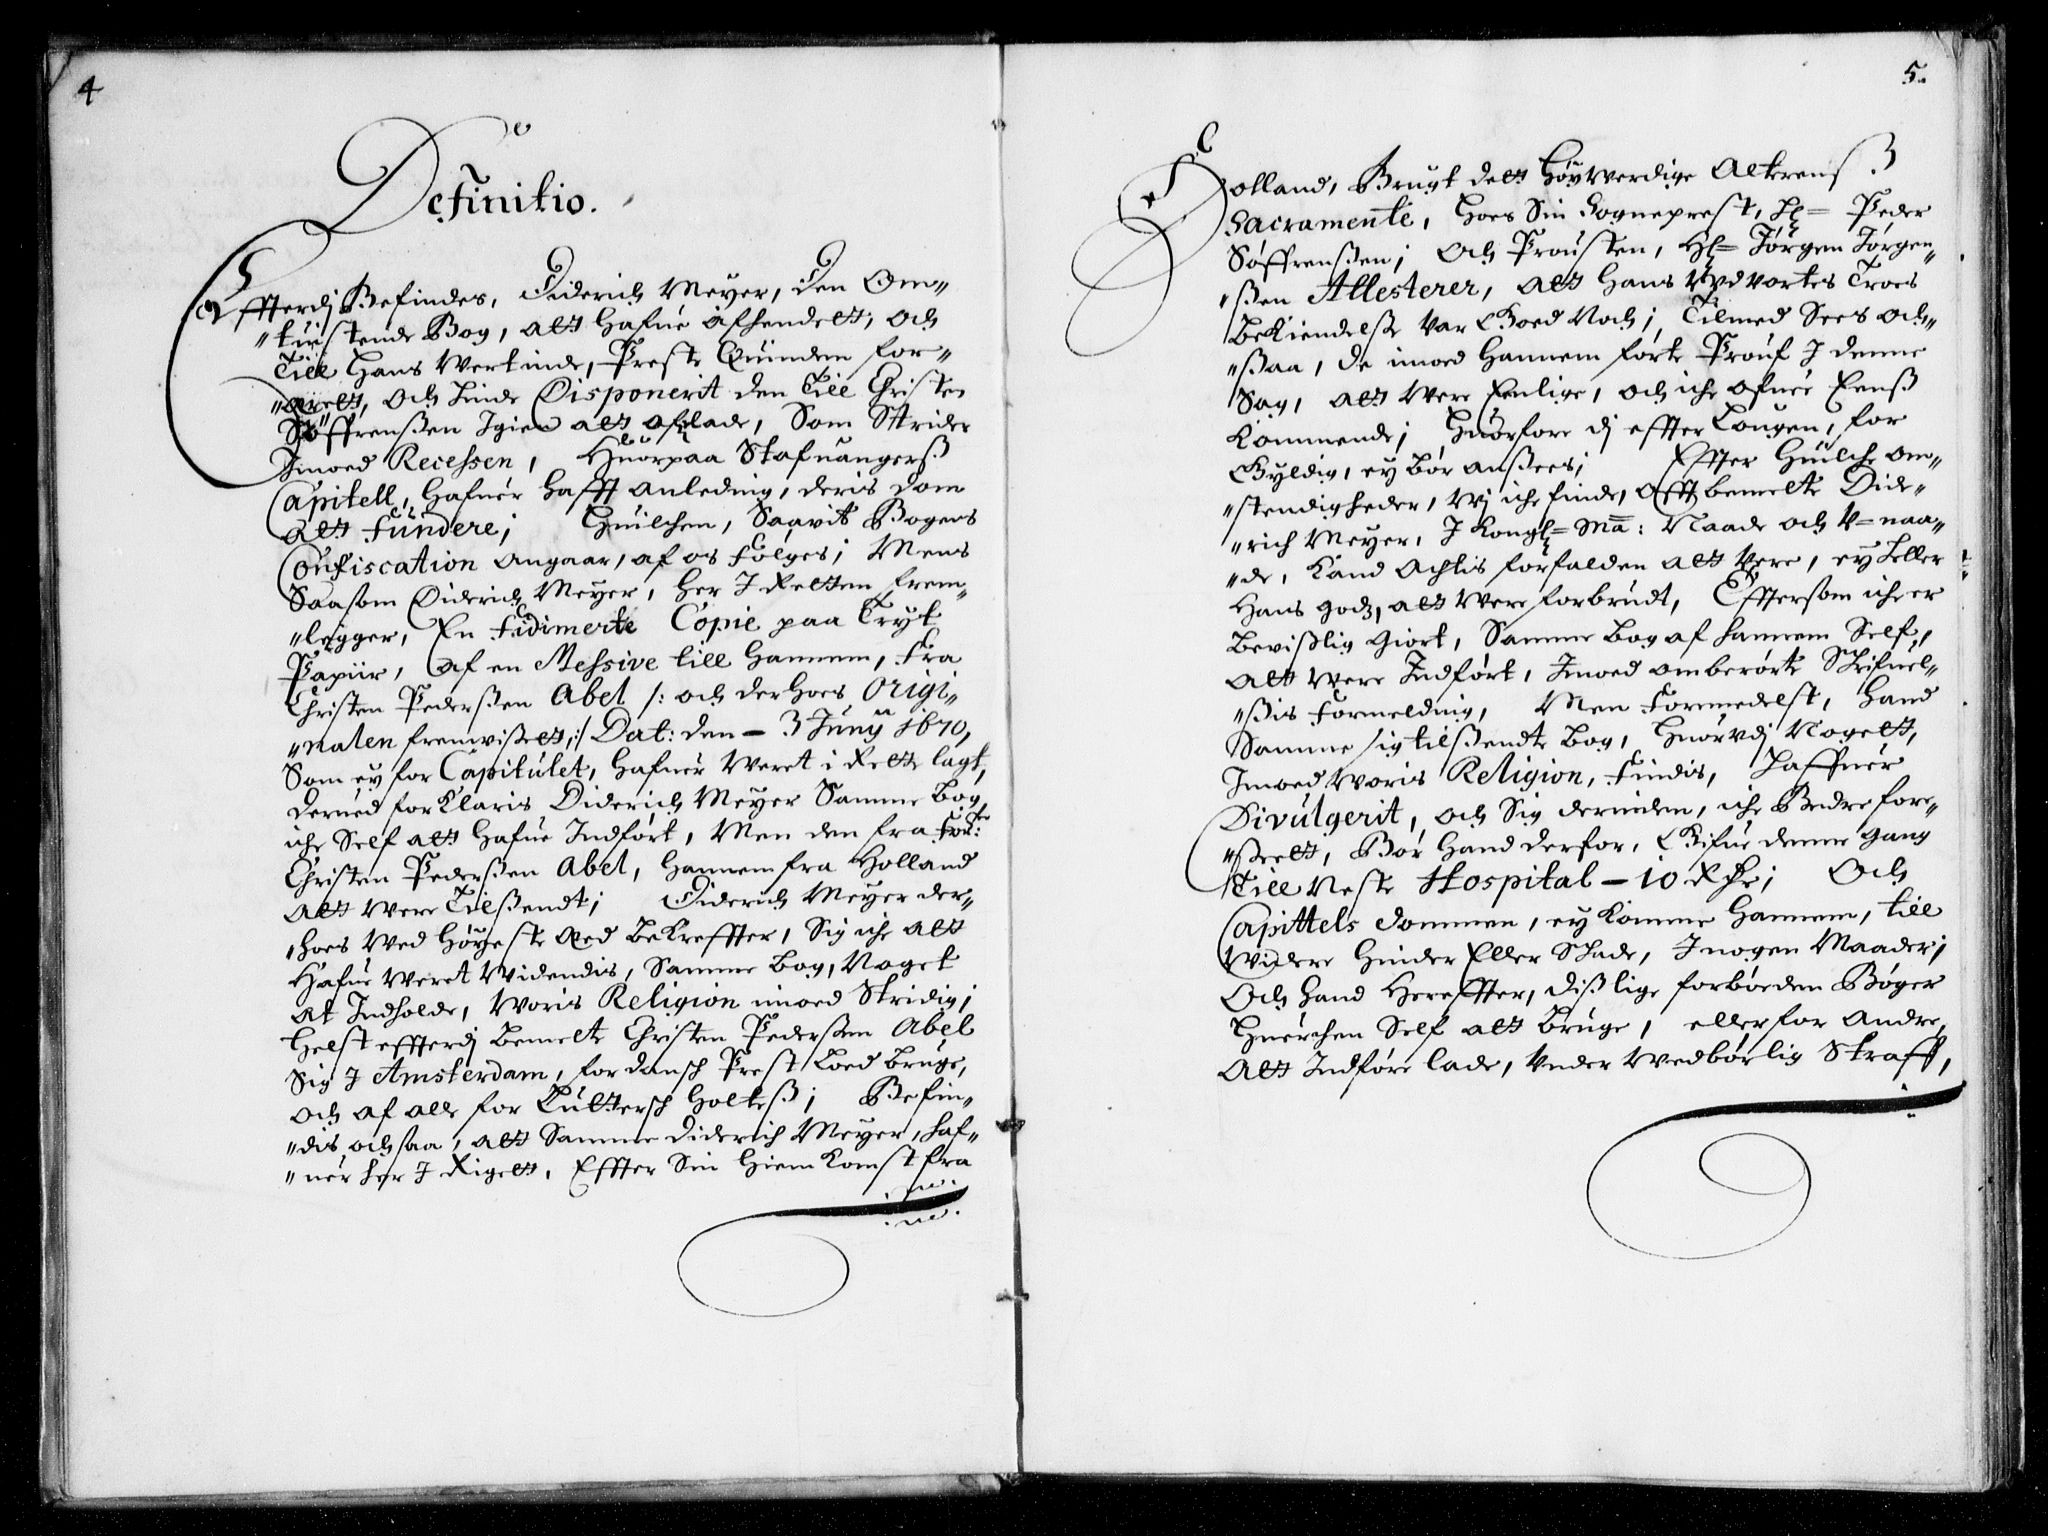 4
Definitio.
Effterdj Befindes, Diderich Meyer, Den Om„
„tuistende Bog, att hafue afhendett, och
Till Hans Wertinde, Preste Quinden for„
„æret, och hinde Disponerit den Till Christen
Søffrenßen Igien att aflade, Som Strider
Imoed Recessen, Huorpaa Stafuangerß
Capitell, hafuer hafft anleding, deris dom
att fundere; Huilchen, Saavit Bogens
Confiscation angaar, af os følges; Mens
Saasom Diderich Meyer, her I Retten frem„
„legger, En fidimerte Copie paa Tryt
Papiir, af en Messive till Hannem, fra
Christen Pederßen Abel /: och derhoes Origi„
„nalen fremvißet, :/ Dat: den – 3 Junÿ 1670,
Som ey for Capitulet, hafuer Weret i Rette lagt,
derued forKlaris Diderich Meyer Samme Bog
iche Self att hafue Indført, Men den fra
Christen Pederßen Abel, hannem fra Holland
att Were Tilßendt; Diderich Meyer der„
„hoes Wed Høyeste Eed beKreffter, Sig iche att
Hafue Weret Widendis, Samme Bog, Noget
At Indholde, Woris Religion imoed Stridig;
helst effterdj bemelte Christen Pederßen Abel
Sig I Amsterdam, for dansch Prest Loed bruge,
och af alle for Luttersch holteß; Befin„
„dis, och saa, att Samme Diderich Meyer, haf„
„uer her I Riget, Effter Sin HiemKomst fra
5.
Holland, Brugt dett HøyWerdige Alterenß
Sacramente, hoes Sin Sogneprest, Hl= Peder
Søffrenßen; Och Prousten, Hl= Jørgen Jørgen„
„ßen Attesterer, att hans Wdvortes Troes
beKiendelße Var Goed Noch; Tilmed Sees och„
„ßaa, de imoed hannem førte Prouf I denne
Sag, att Were Eenlige, och iche ofuer Eenß
Kommende; Huorfore dj effter Lougen, for
Gyldig, ey bør anßees; Effter Huilche Om„
„stendigheder, Wj iche finde, Offtbemelte Dide„
„rich Meyer, I Kongl= Ma: Naade och V=naa„
„de, Kand Achtis forfalden att Vere, ey heller
Hans godz, att Were forbrudt, Efftersom iche er
beviislig Giort, Samme bog af hannem Self,
att Were Indført, Imoed omberørte Skrifuel„
„ßis formelding, Men formedelst, hand
Samme sig tilßendte bog, Huorvdj Noget,
Imoed Woris Religion, findis, haffuer
Divulgerit, och Sig derinden, iche Bedre fore„
„ßeet, Bør hand derfor, Gifue denne gang
Till Neste Hospital – 10 Rdr; Och
Capittels dommen, ey Komme hannem, till
Widere hinder Eller Skade, I nogen Maader;
Och hand Hereffter, dißlige forbøeden Bøger
huerchen Self att bruge, eller for Andre,
Att Indføre lade, Vnder Wedbørlig Straff,